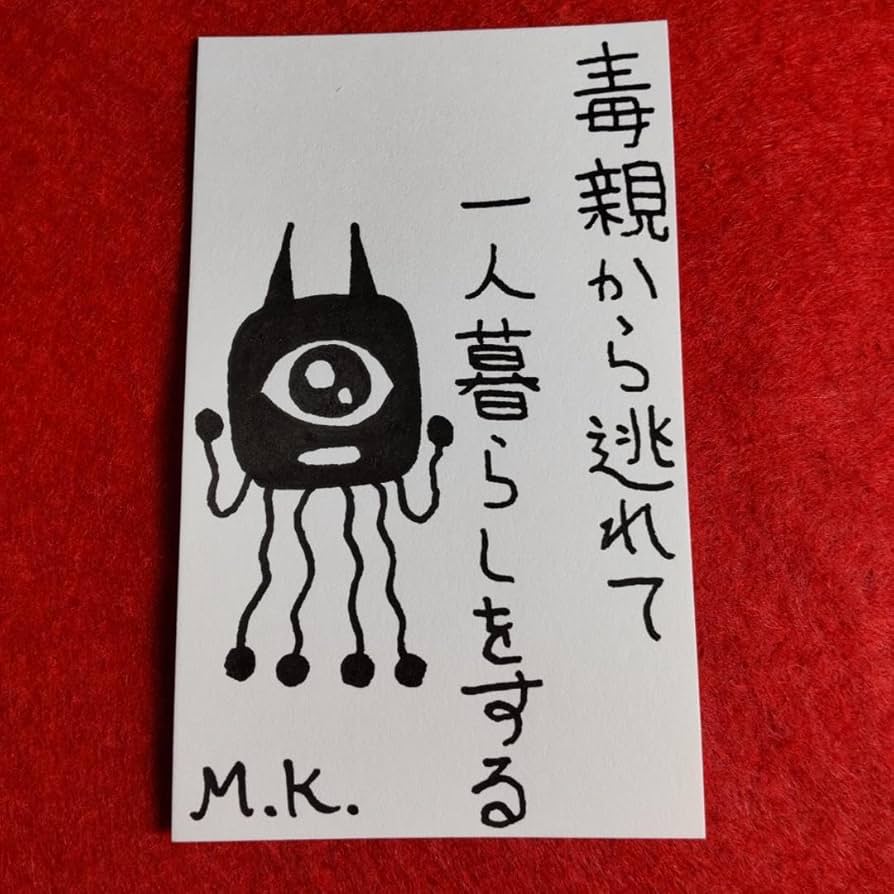 毒親から逃れて
一人暮らしをする
M.K.